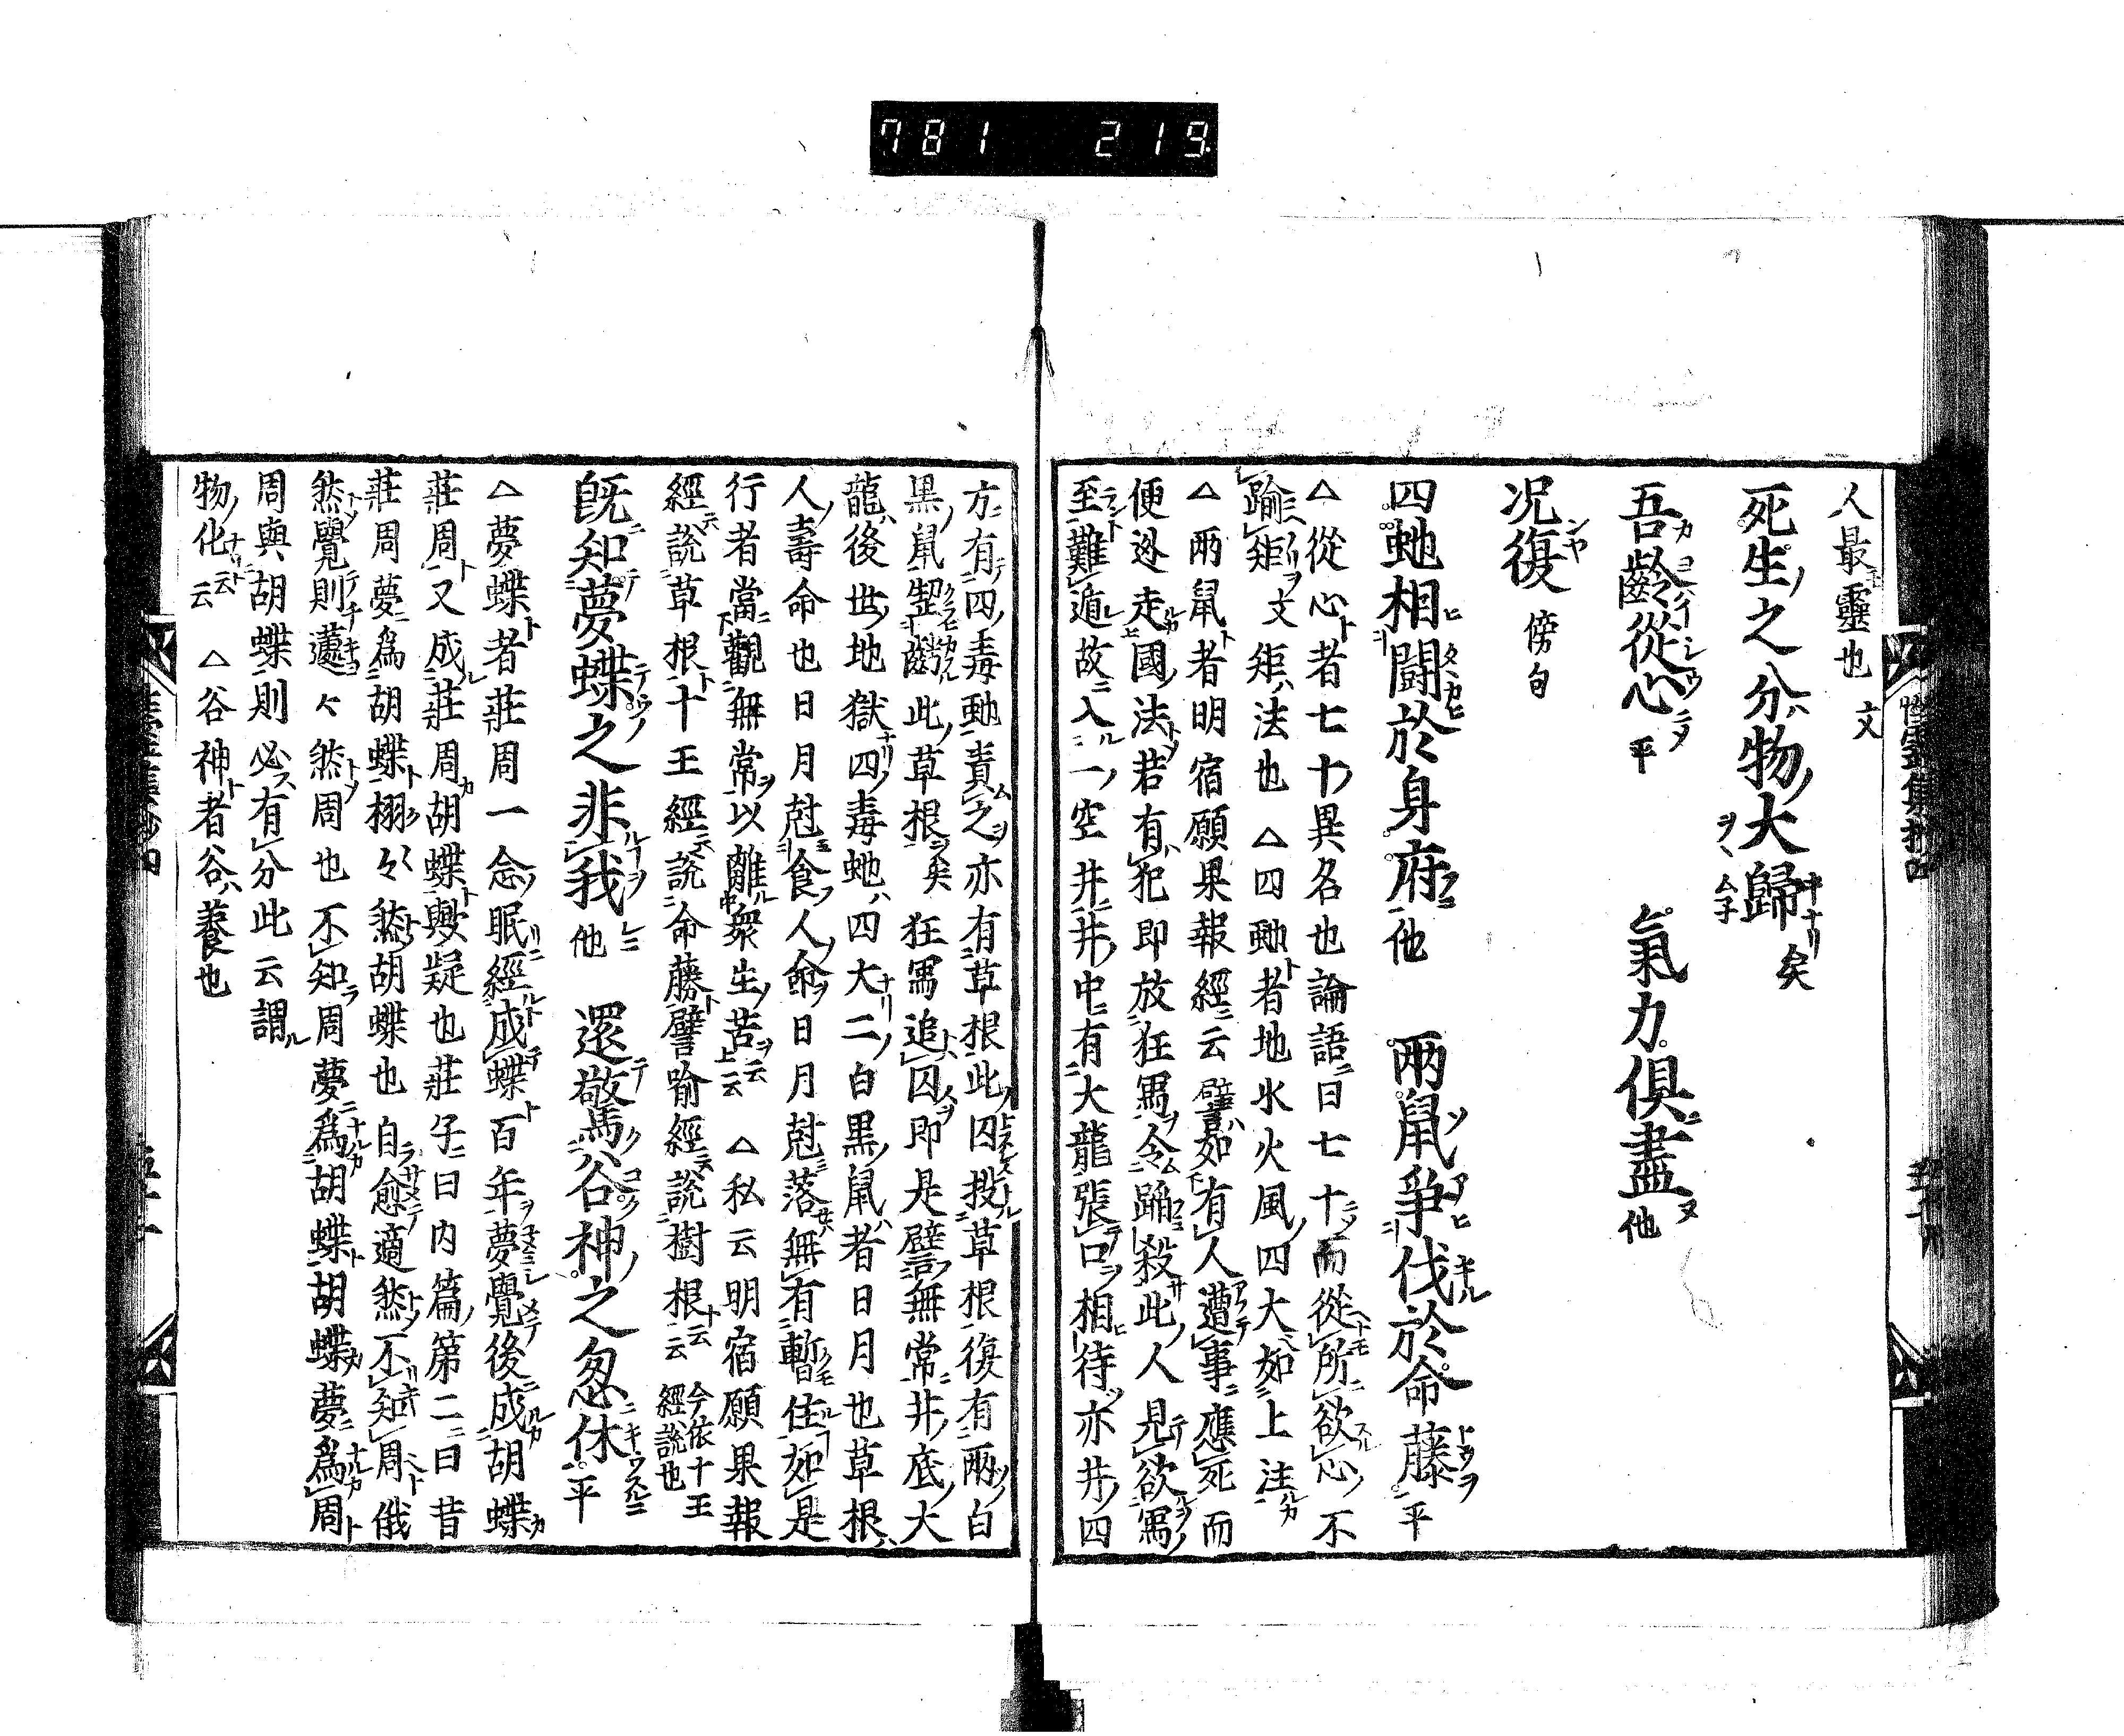 781 219
人最靈也 文
死生之分物大歸矣
吾齡從心平 氣力俱盡他
况復 傍句
四虵相鬪於身府他 兩鼠爭伐於命藤平
△從心者七十異名也論語曰七十而從所欲心不
踰矩文矩法也 △四虵者地水火風四大如上注
△兩鼠者明宿願果報經云譬如有人遭事應死而
便迯走國法若有犯即放狂象令踊殺此人見欲象
至難遁故入一空井井中有大龍張口相待亦井四
方有四毒虵責之亦有草根此囚投草根復有兩白
黒鼠齧此草根矣 狂象追囚即是譬無常井底大
龍後世地獄四毒虵四大二白黒鼠者日月也草根
人壽命也日月尅食人命日月尅落無有暫住如是
行者當觀無常以離衆生苦云云 △私云明宿願果報
經說草根十王經說命藤譬喻經說樹根云云 今依十王經說也
既知夢蝶之非我他 還驚谷神之忽休平
△夢蝶者莊周一念眠經成蝶百年夢覺後成胡蝶
莊周又成莊周胡蝶與疑也莊子曰內篇第二曰昔
莊周夢爲胡蝶栩々然胡蝶也自愈適然不知周俄
然覺則蘧々然周也不知周夢爲胡蝶胡蝶夢爲周
周與胡蝶則必有分此云謂
物化云云 △谷神者谷養也